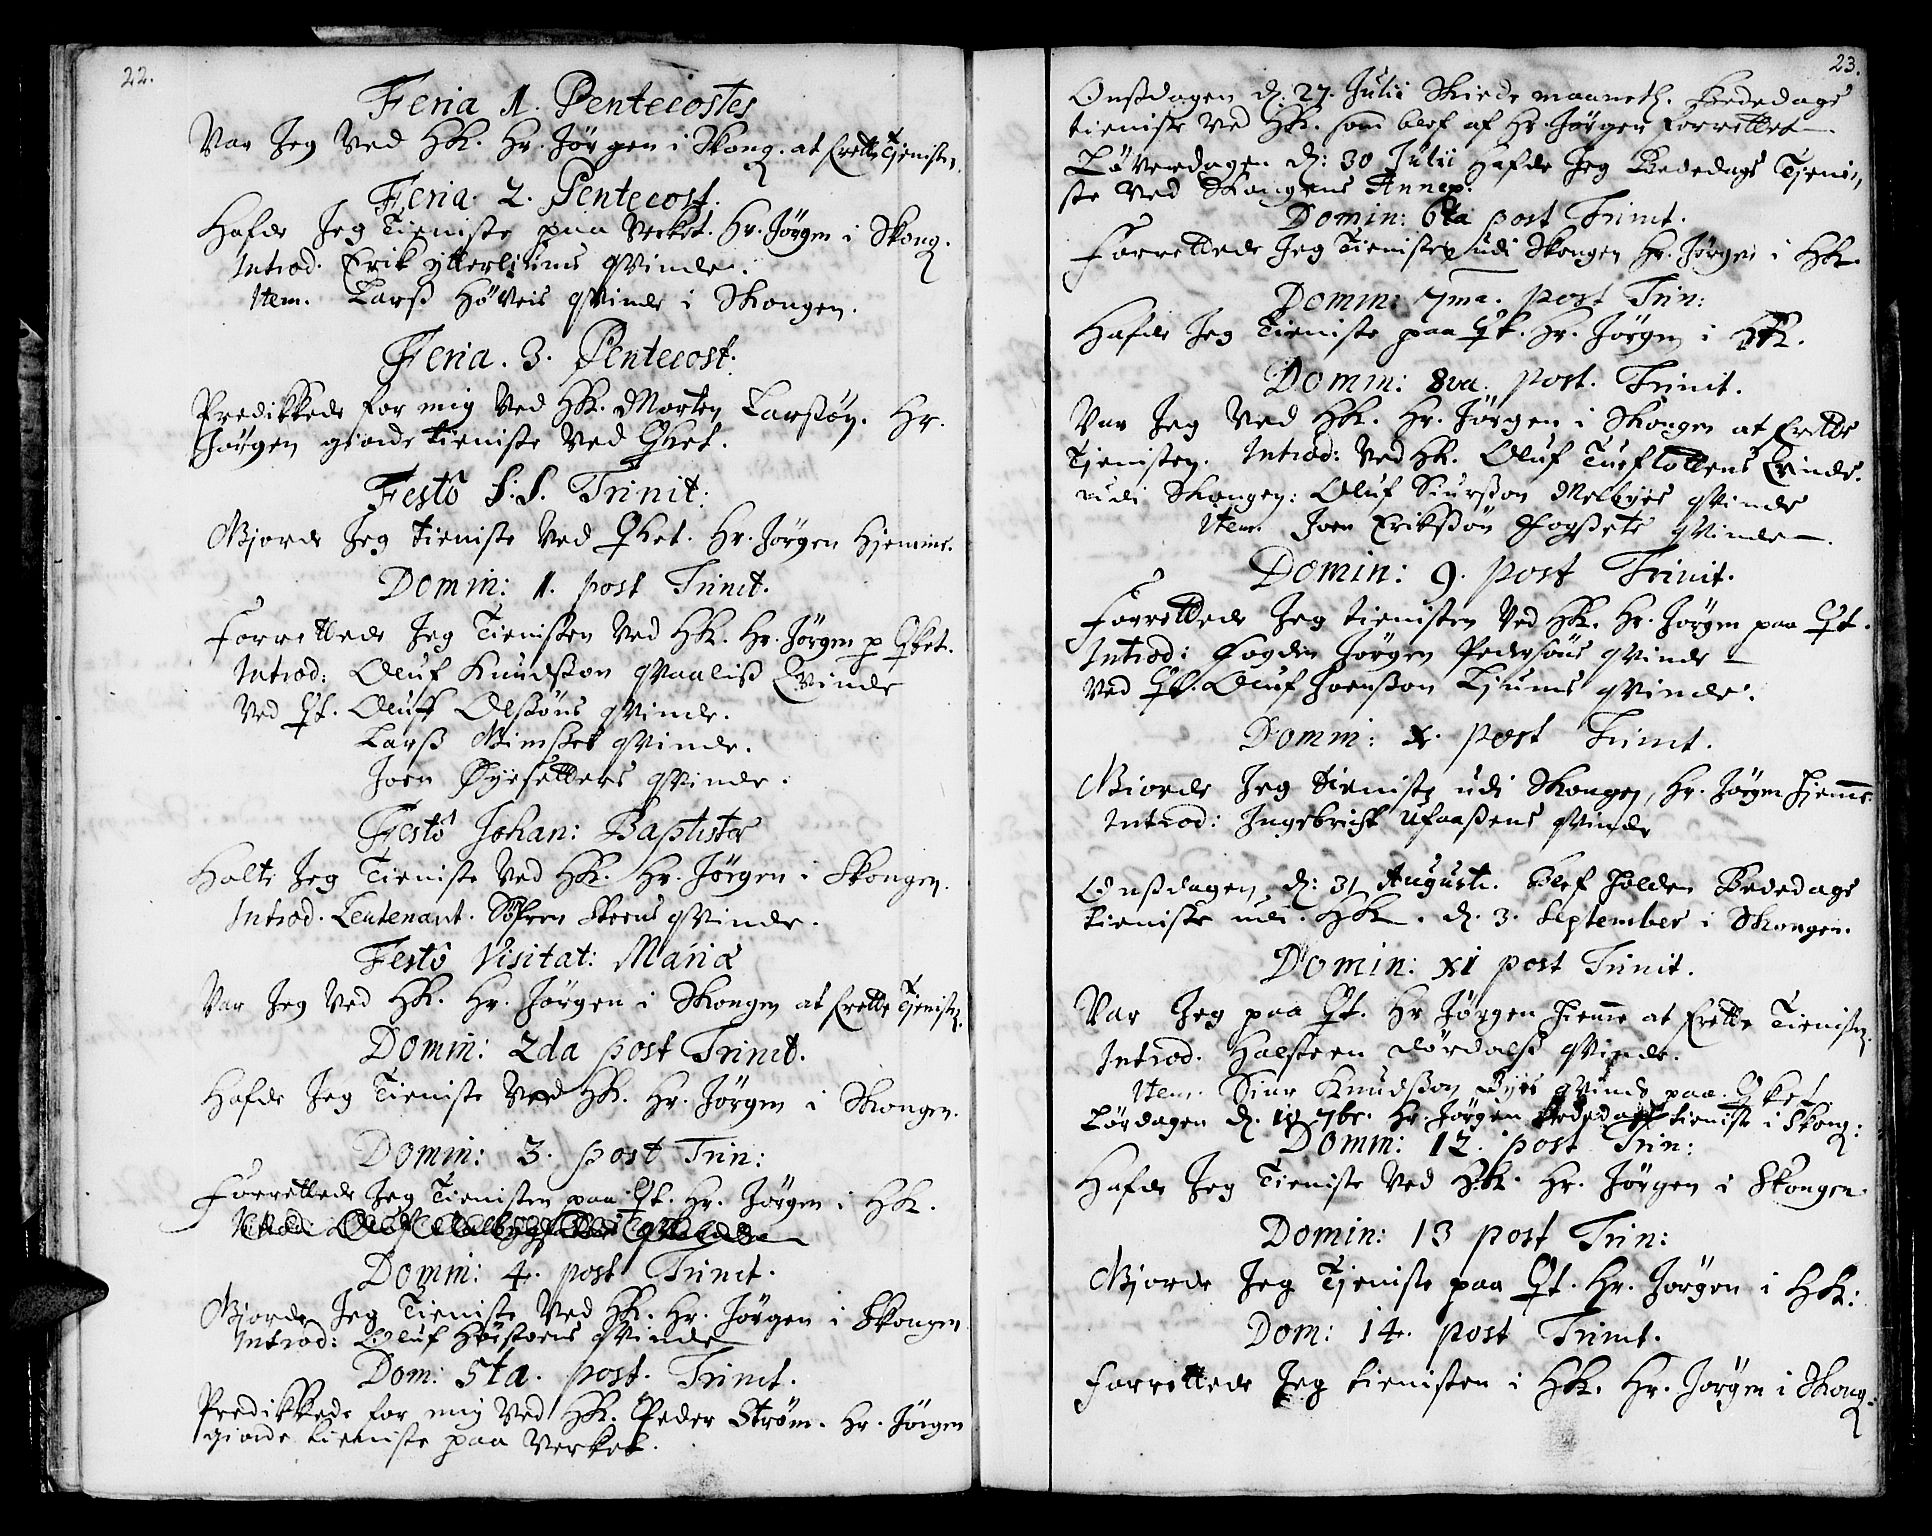 22.
Feria 1. Pentecostes
Var Jeg Ved HK. Hr. Jörgen i Skong. at forrette Tjenisten.
Feria 2. Pentecost.
Hafde Jeg Tieniste paa Verket. Hr. Jörgen i Skong.
Introd. Erik ytterliums qvinde.
Item. Larß Höveis qvinde i Skongen.
Feria. 3. Pentecost:
Predikkede for mig Ved HK. Morten Larßön. Hr.
Jörgen giorde tieniste Ved Qket.
Festô S:S. Trinit:
Gjorde Jeg tieniste Ved Qket. Hr. Jörgen Hjemme.
Domin: 1. post Trinit.
Forrettede Jeg Tienisten Ved HK. Hr. Jörgen p Qket.
Introd: Oluf Knudßon Qvaaliß Qvinde
Ved Qk. Oluff Olßöns qvinde.
Larß Gimßes qvinde.
Joen Öyesetters qvinde.
Festô Johan: Baptistæ
Holte Jeg Tieniste Ved HK. Hr. Jörgen i Skongen.
Introd. Leutenant. Söfren Steens qvinde.
Festô Visitat: Mariæ
Var Jeg Ved HK. Hr. Jörgen i Skongen at forrette Tjenist.
Domin: 2da post Trinit.
Hafde Jeg Tieniste Ved HK. Hr. Jörgen i Skongen.
Domin: 3. post Trin:
Forrettede Jeg Tienisten paa Qk. Hr. Jörgen i HK.
Introd: Oluf
Domin: 4. post Trinit.
Gjorde Jeg Tieniste Ved HK. Hr. Jörgen i Skongen
Introd: Oluf Höistoens qvinde
Dom: 5ta. post. Trinit.
Predikkede for mig Ved HK. Peder Ström. Hr. Jörgen
giorde tieniste paa Verket.
23.
Onßdagen d: 27. Julii Skiede maaneth. Bededags
tieniste Ved HK. som blef af Hr. Jörgen forrettet.
Löverdagen d: 30 Julii Hafde Jeg Bededags Tjeni-
ste Ved Skongens Annex.
Domin: 6ta post Trinit.
Forrettede Jeg Tieniste udi Skongen Hr. Jörgen i HK.
Domin: 7ma. post Trin:
Hafde Jeg Tieniste paa Qk. Hr. Jörgen i HK.
Domin: 8va. post. Trinit.
Var Jeg Ved HK. Hr. Jörgen i Skongen at forrette
Tjenisten. Introd: Ved HK. Oluf Tuesflottens Qvinde.
udi Skongen: Oluf Siurßon Melbyes qvinde
Item. Joen Erikßön Fosßets qvinde.
Domin: 9. post Trinit.
Forrettede Jeg tienisten Ved HK. Hr. Jörgen paa Qk.
Introd: Fogden Jörgen Pedersöns qvinde
Ved Qk. Oluf Joenßon Ljums qvinde.
Domin: x. post Trinit.
Giorde Jeg tieniste udi Skongen, Hr. Jörgen Hjemme.
Introd: Ingebricht Ufaaßens qvinde
Onßdagen d: 31 Augusti. blef holden Bededags
tieniste udi. HK. d. 3. September i Skongen.
Domin: XI post Trinit.
Var Jeg paa Qk. Hr Jörgen hieme at forrette Tienist.
Introd. Halsteen Dördalß qvinde.
Item. Siur Knudßon Byes qvinde paa Qket.
Lördagen d. 10 7br. Hr. Jörgen Bededags tieniste i Skong:
Domin: 12. post Trin:
Hafde Jeg Tieniste Ved HK. Hr. Jörgen i Skongen.
Domin: 13 post Trin:
Gjorde Jeg Tjeniste paa Qk. Hr. Jörgen i HK:
Dom: 14. post Trinit.
Forrettede Jeg tienisten i HK. Hr. Jörgen i Skong: